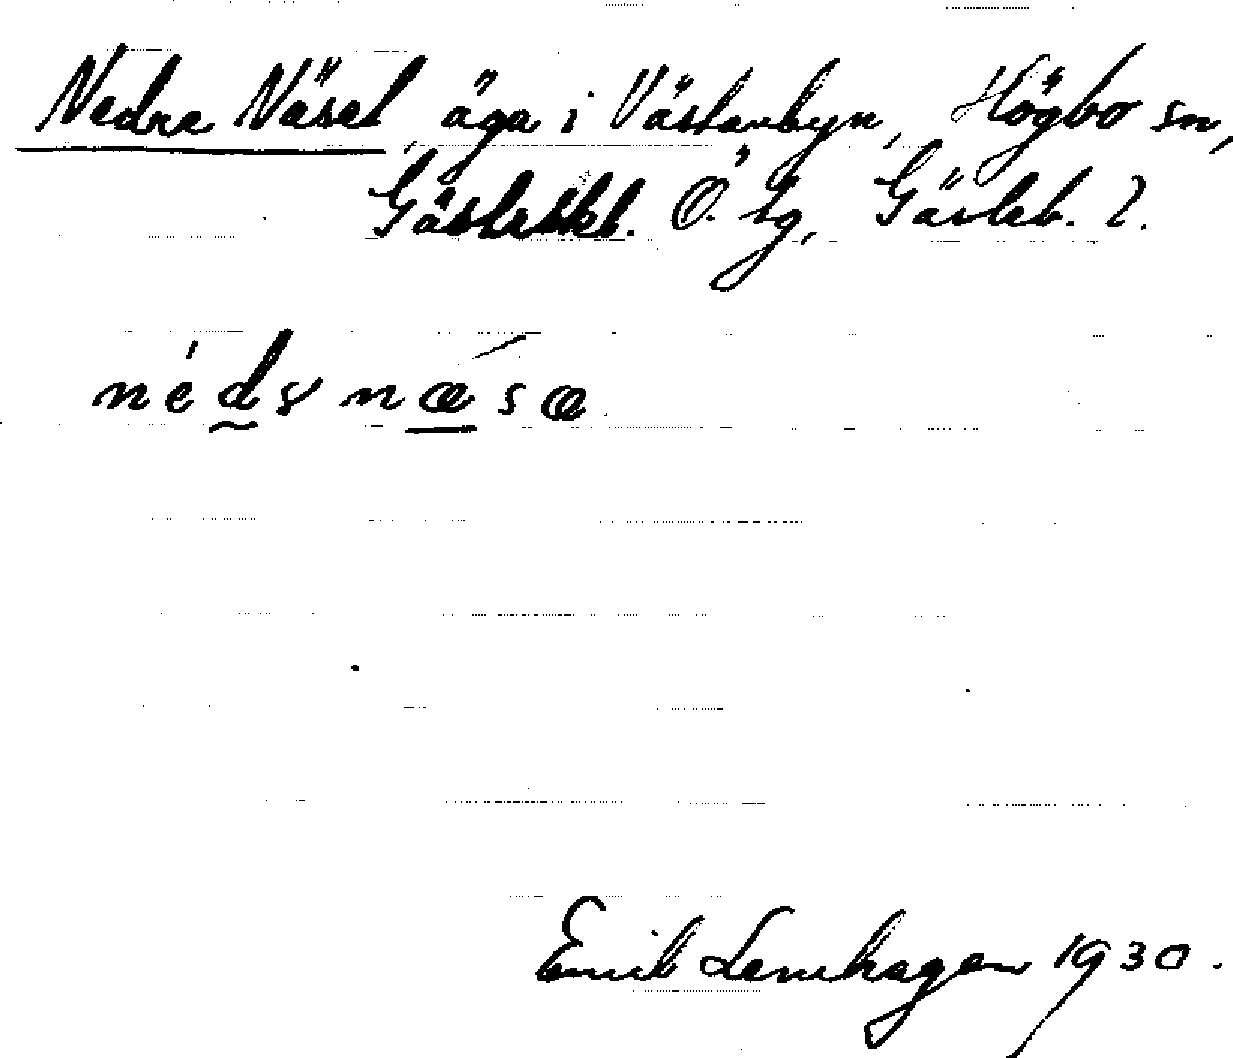 Nedre Näset, äga i Västanbyn, Högbo sn,
Gästrikl. Ö. tg, Gävleb. l.
nedy næsæ
Emil Lenhagen 1930.